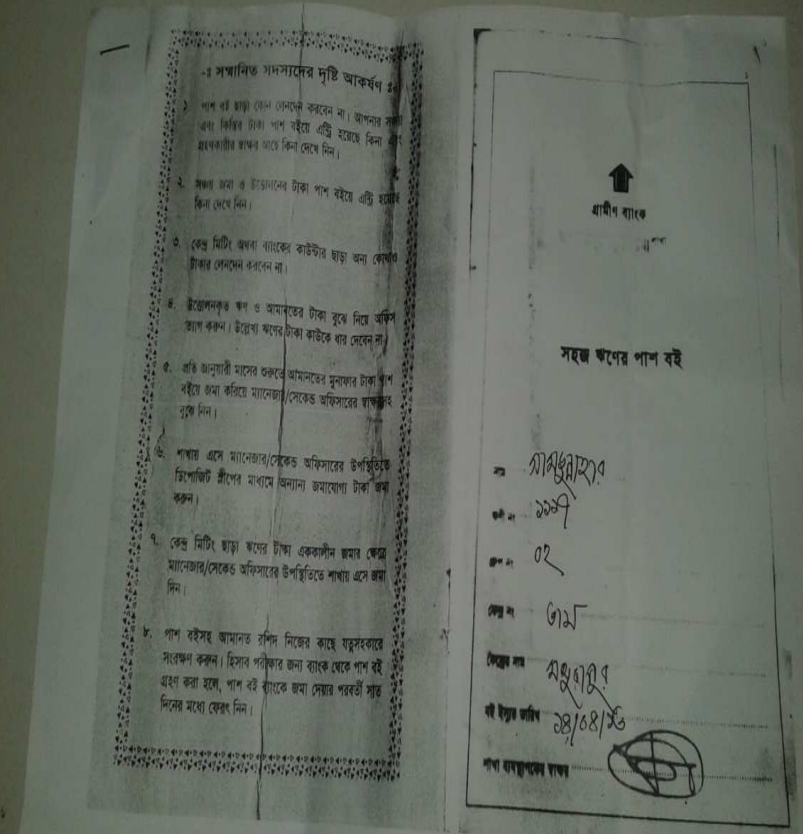 -ঃ সম্মানিত সদস্যদের দৃষ্টি আকর্ষণ ঃ-
১. পাশ বই ছাড়া কোন লেনদেন করবেন না। আপনার
এবং কিস্তির টাকা পাশ বইয়ে এন্ট্রি হয়েছে কিনা এবং
গ্রহণকারীর স্বাক্ষর আছে কিনা দেখে নিন।
২. সঞ্চয় জমা ও উত্তোলনের টাকা পাশ বইয়ে এন্ট্রি হয়েছে
কিনা দেখে নিন।
৩. কেন্দ্র মিটিং অথবা ব্যাংকের কাউন্টার ছাড়া অন্য কোথাও
টাকার লেনদেন করবেন না।
৪. উত্তোলনকৃত ঋণ ও আমানতের টাকা বুঝে নিয়ে অফিস
ত্যাগ করুন। উল্লেখ্য ঋণের টাকা কাউকে ধার দেবেন না।
৫. প্রতি জানুয়ারী মাসের শুরুতে আমানতের মুনাফার টাকা পাশ
বইয়ে জমা করিয়ে ম্যানেজার/সেকেন্ড অফিসারের স্বাক্ষরসহ
বুঝে নিন।
৬. শাখায় এসে ম্যানেজার/সেকেন্ড অফিসারের উপস্থিতিতে
ডিপোজিট স্লীপের মাধ্যমে অন্যান্য জমাযোগ্য টাকা জমা
করুন।
৭. কেন্দ্র মিটিং ছাড়া ঋণের টাকা এককালীন জমার ক্ষেত্রে
ম্যানেজার/সেকেন্ড অফিসারের উপস্থিতিতে শাখায় এসে জমা
দিন।
৮. পাশ বইসহ আমানত রশিদ নিজের কাছে যত্নসহকারে
সংরক্ষণ করুন। হিসাব পরীক্ষার জন্য ব্যাংক থেকে পাশ বই
গ্রহণ করা হলে, পাশ বই ব্যাংকে জমা দেয়ার পরবর্তী সাত
দিনের মধ্যে ফেরৎ নিন।
গ্রামীণ ব্যাংক
শাখা
সহজ ঋণের পাশ বই
নাম
ঋণী নং
গ্রুপ নং ০২
কেন্দ্র নং
কেন্দ্রের নাম
বই ইস্যুর তারিখ ১৪/০৪/১৬
শাখা ব্যবস্থাপকের স্বাক্ষর